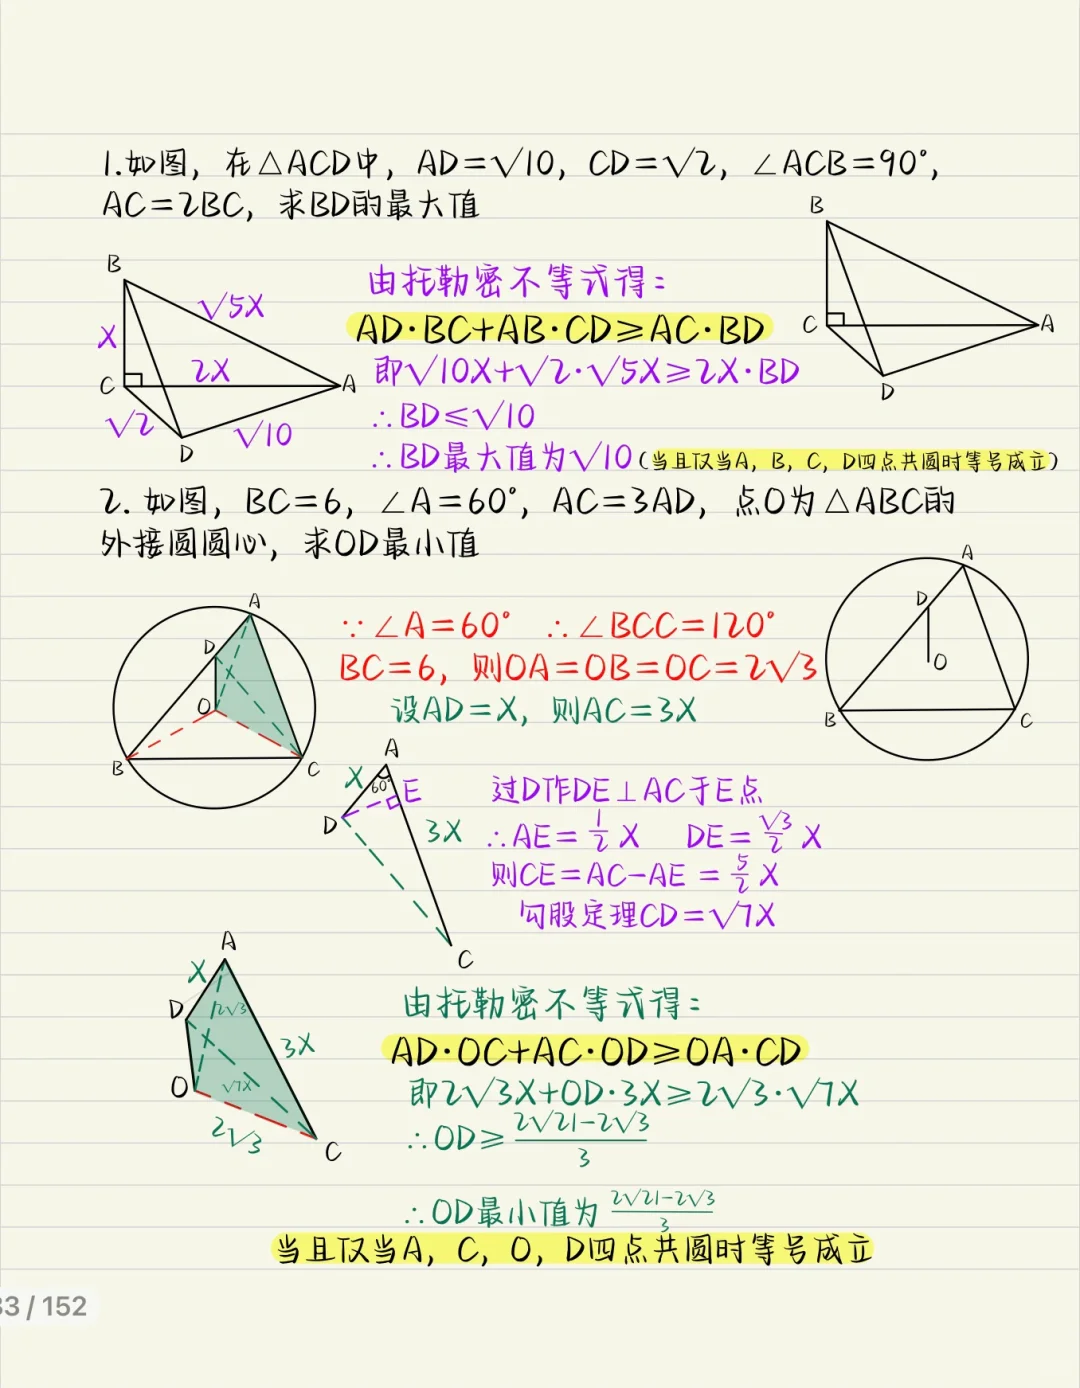 1.如图，在△ACD中，AD=√10，CD=√2，∠ACB=90°，
AC=2BC，求BD的最大值
B
C
A
D
B
√5X
X
2X
C
A
√2
√10
D
由托勒密不等式得：
AD·BC+AB·CD≥AC·BD
即√10X+√2·√5X≥2X·BD
∴BD≤√10
∴BD最大值为√10（当且仅当A，B，C，D四点共圆时等号成立）
2. 如图，BC=6，∠A=60°，AC=3AD，点O为△ABC的
外接圆圆心，求OD最小值
A
D
O
B
C
A
D
O
B
C
∵∠A=60° ∴∠BCC=120°
BC=6，则OA=OB=OC=2√3
设AD=X，则AC=3X
A
X
60°
E
D
3X
C
过D作DE⊥AC于E点
∴AE=1/2 X DE=√3/2 X
则CE=AC-AE=5/2 X
勾股定理CD=√7X
A
X
D
2√3
3X
O
√7X
2√3
C
由托勒密不等式得：
AD·OC+AC·OD≥OA·CD
即2√3X+OD·3X≥2√3·√7X
∴OD≥(2√21-2√3)/3
∴OD最小值为(2√21-2√3)/3
当且仅当A，C，O，D四点共圆时等号成立
33/152